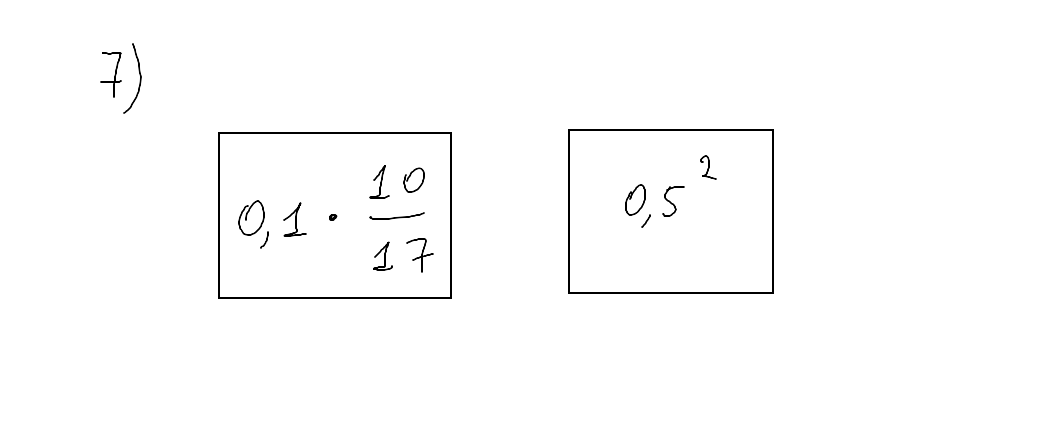 7)
0,1 · 10/17
0,5²